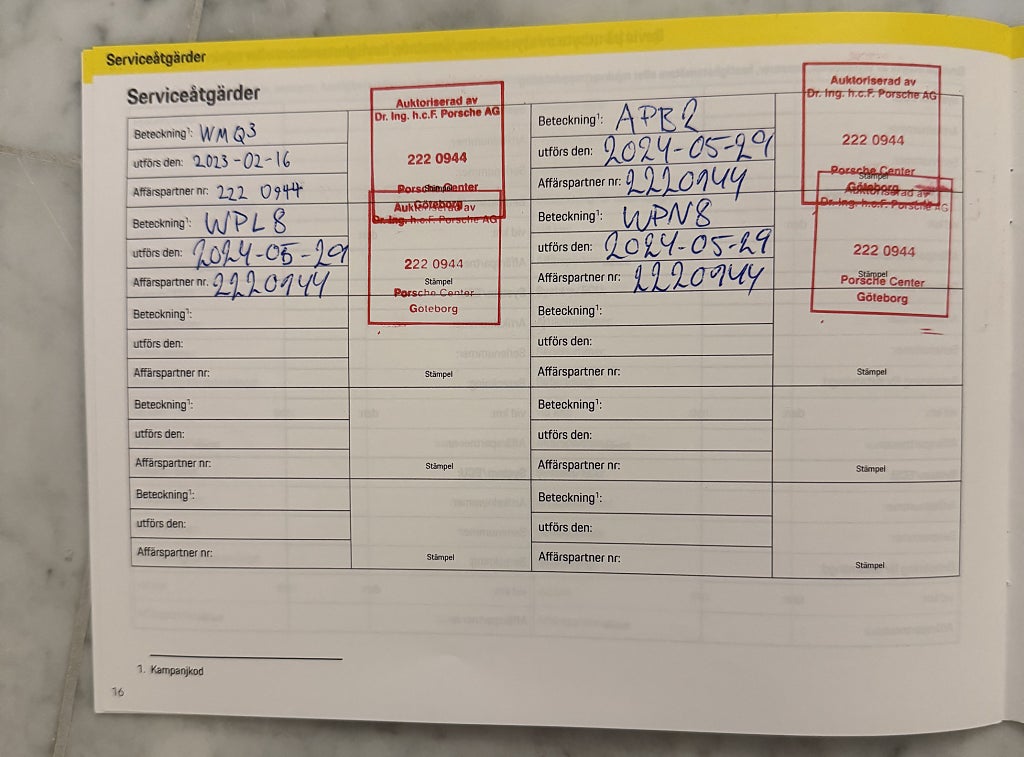 Serviceåtgärder
Serviceåtgärder
Beteckning¹: WMQ3
utförs den: 2023-02-16
Affärspartner nr: 222 0944
Auktoriserad av
Dr. Ing. h.c.F. Porsche AG
222 0944
Porsche Center
Stämpel
Göteborg
Beteckning¹: APB2
utförs den: 2024-05-29
Affärspartner nr: 2220944
Auktoriserad av
Dr. Ing. h.c.F. Porsche AG
222 0944
Porsche Center
Stämpel
Göteborg
Beteckning¹: WPL8
utförs den: 2024-05-29
Affärspartner nr. 2220944
Auktoriserad av
Dr. Ing. h.c.F. Porsche AG
222 0944
Stämpel
Porsche Center
Göteborg
Beteckning¹: WPN8
utförs den: 2024-05-29
Affärspartner nr: 2220944
Auktoriserad av
Dr. Ing. h.c.F. Porsche AG
222 0944
Stämpel
Porsche Center
Göteborg
Beteckning¹:
utförs den:
Affärspartner nr:
Stämpel
Beteckning¹:
utförs den:
Affärspartner nr:
Stämpel
Beteckning¹:
utförs den:
Affärspartner nr:
Stämpel
Beteckning¹:
utförs den:
Affärspartner nr:
Stämpel
Beteckning¹:
utförs den:
Affärspartner nr:
Stämpel
Beteckning¹:
utförs den:
Affärspartner nr:
Stämpel
1. Kampanjkod
16